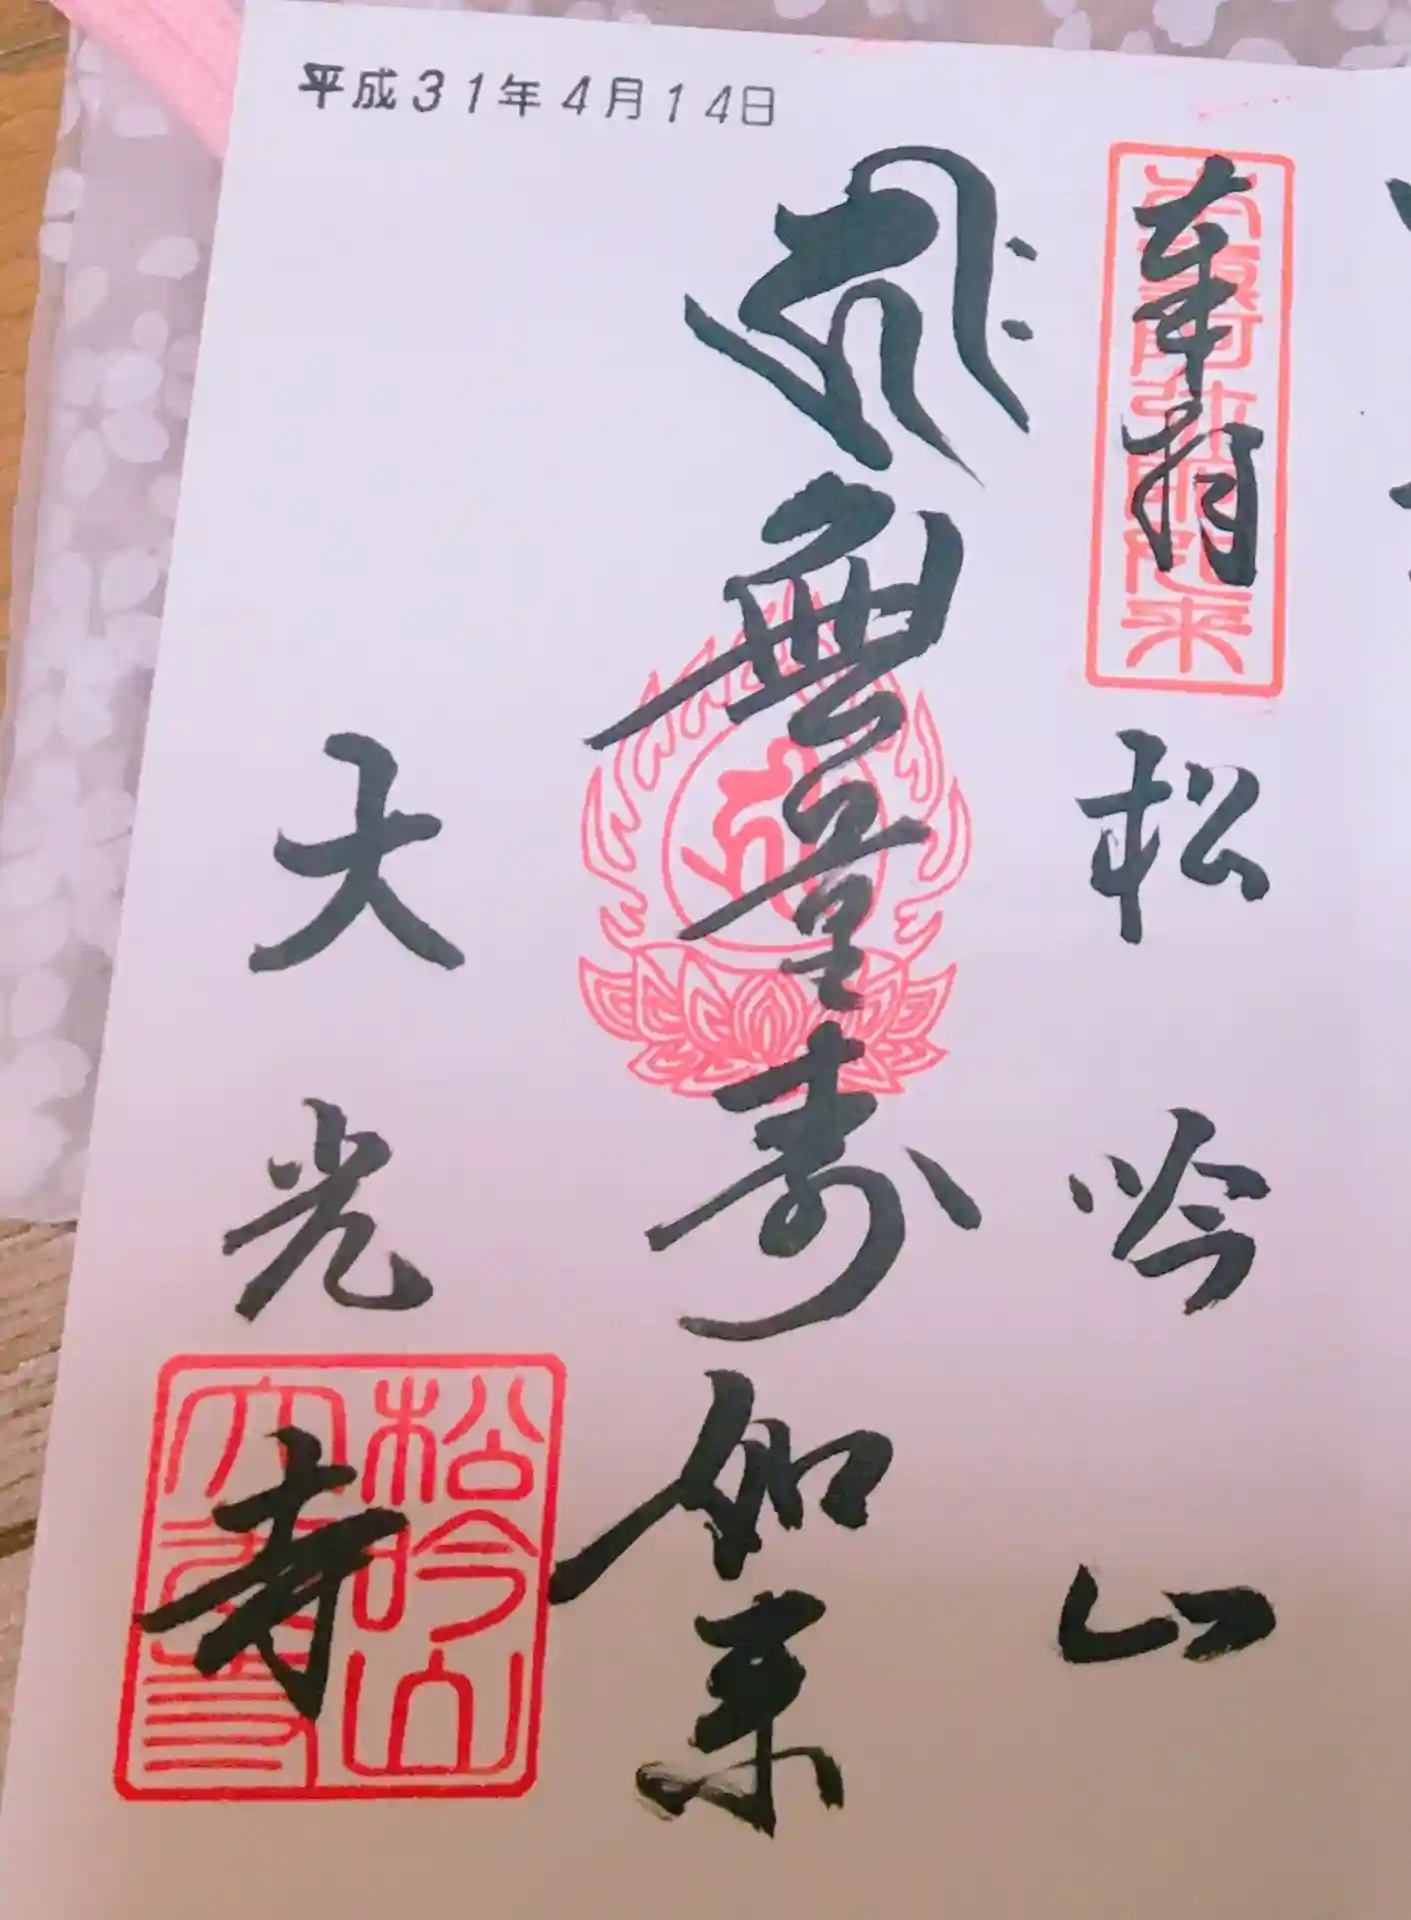 平成31年4月14日
奉拝
本尊阿弥陀如来
松吟山
キリーク 無量寿如来
大光寺
松吟山
大光寺